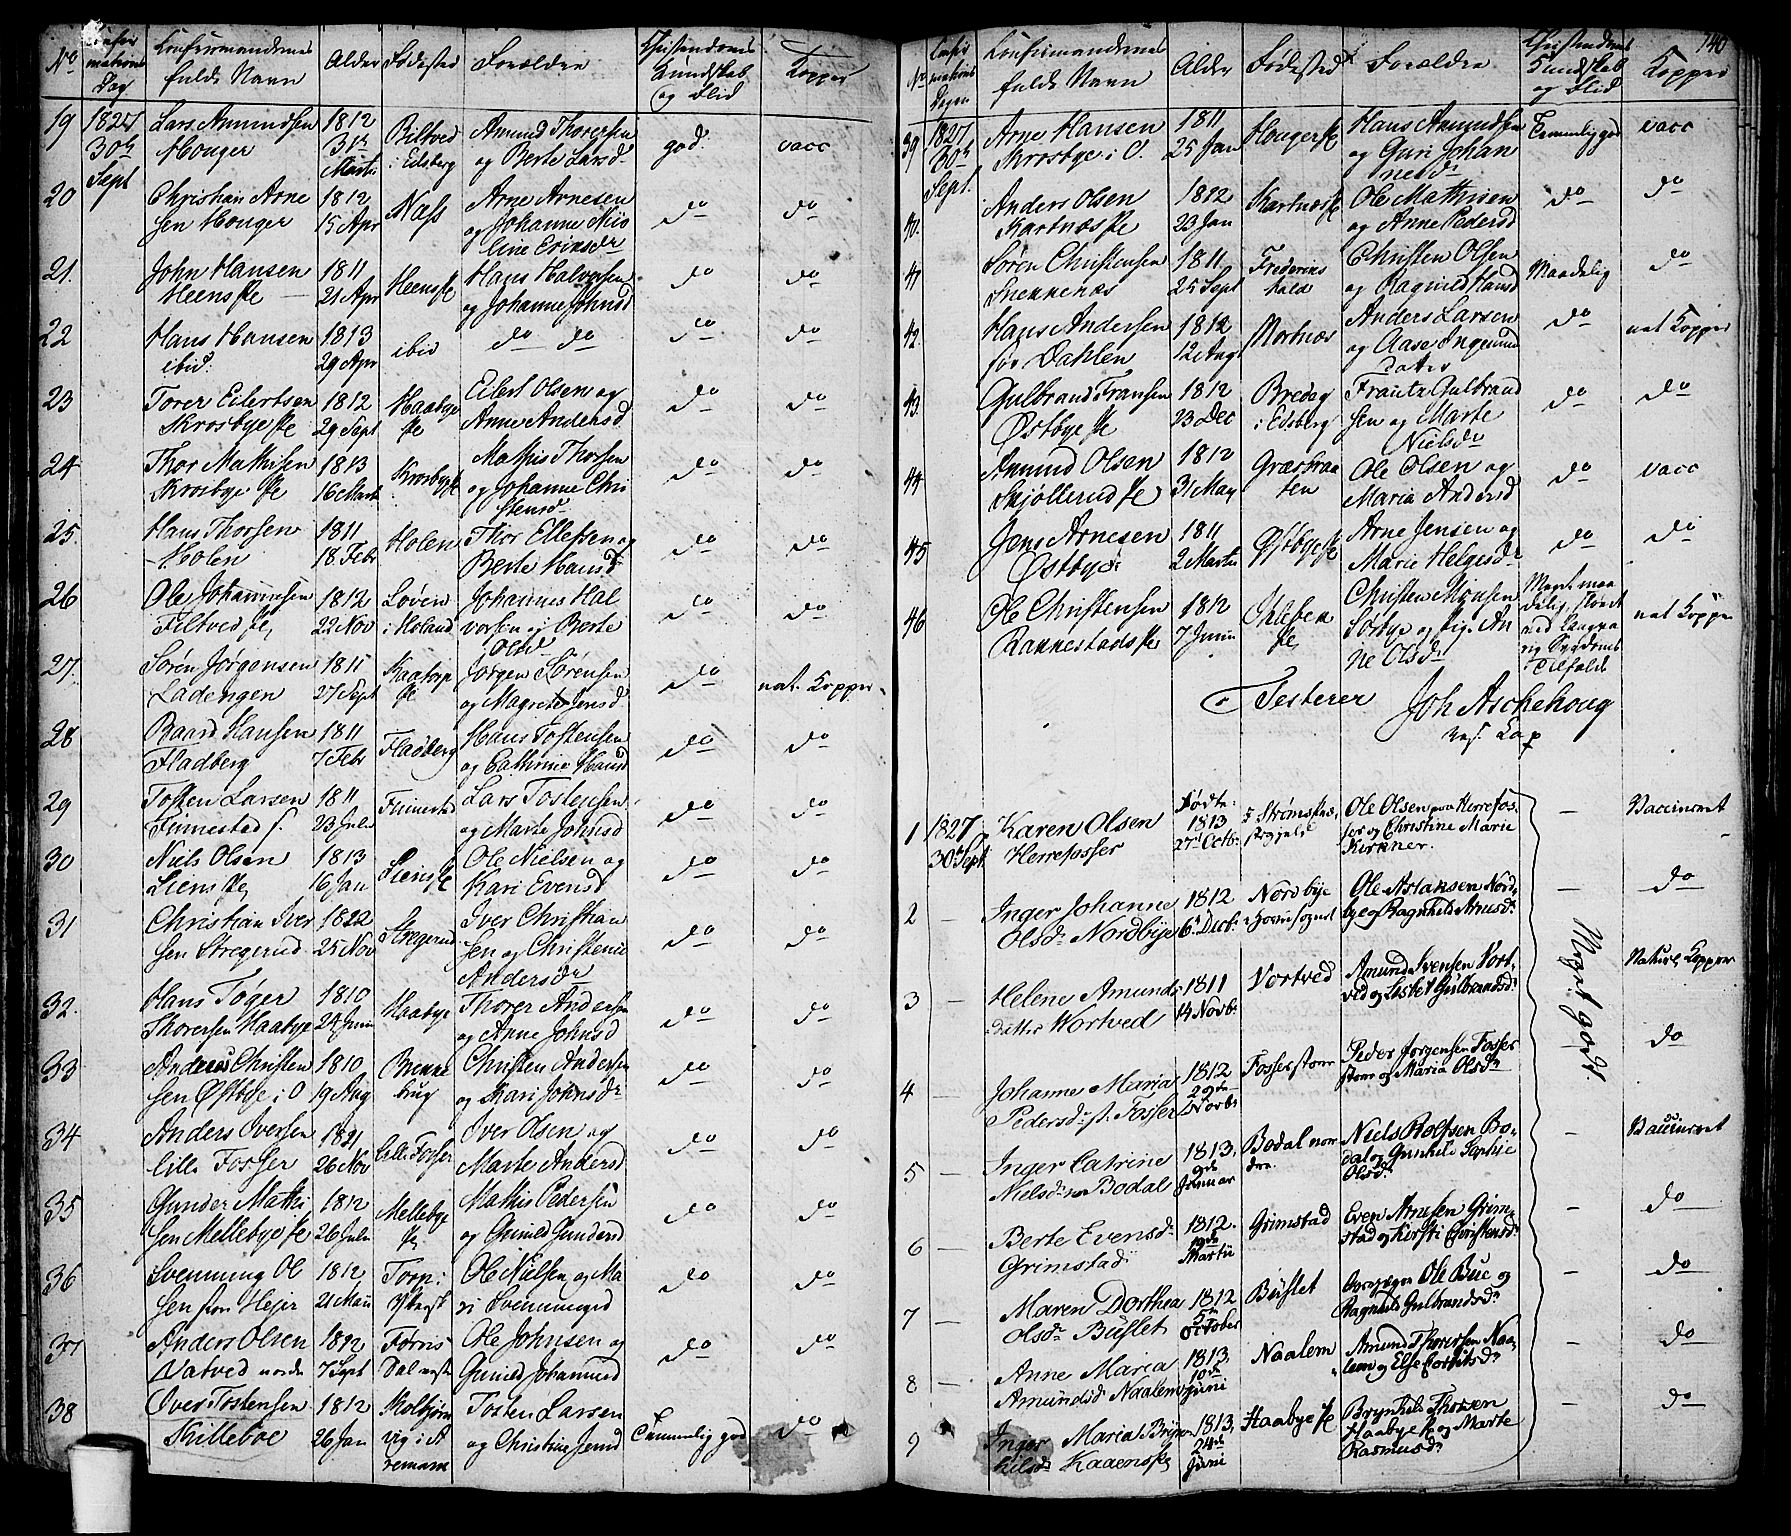 No
Confir
mations
Dag
Confirmandernes
fulde Navn
Alder
Fødested
Forældre
Christendoms
Kundskab
og Flid
Kopper
19
1827
30th
Sept
Lars Amundsen
Houger
1812
31te
Marti
Biltved
i Edsberg
Amund Thorersen
og Berte Larsd
god.
vacc
20
Christian Arne
sen Houger
1812
15 Apr
Næss
Arne Arnesen
og Johanne
line Eriksdr
do
do
21.
John Hansen
Heenspe
1811
21 Apr
Heenspe
Hans Halvorsen
og Johanne Johnsd
do
do
22
Hans Hansen
ibid.
1813
29 Apr
ibid
do do
do
do
23
Torer Eilertsen
Krosbye pe
1812
29 Sept
Haabye
pe
Eilert Olsen og
Anne Andersd
do
do
24
Thor Mathisen
Krosbye pe
1813
16 Marts
Krosbype
Mathis Thorsen
og Johanne Chri
stensd
do
do
25.
Hans Thorsen
Holen
1811
18 Febr
Holen
Thor Ellefsen og
Berte Hansd
do
do
26
Ole Johannesen
Filtved pe
1812
22 Nov
Løven
i Høland
Johannes Hal
vorsen og Berte
Olsd
do
do
27.
Søren Jørgensen
Ladengen
1811
27 Sept
pe
Jørgen Sørensen
og Magrete Jensd
do
nat. Kopper
28
Baard Hansen
Fladberg
1811
7 Febr
Fladberg
Hans Tostensen
og Cathrine Hansd
do
do
29
Tosten Larsen
Finnestad
1811
23 Julii
Finnestad
Lars Tostensen
og Marte Johnsd
do
do
30
Niels Olsen
Liens pe
1813
16 Jan
Lienspe
Ole Nielsen og
Kari Evensd
do
do
31
Christian Iver
sen Stregerud
1822
25 Nov
Stregerud
Iver Christian
sen og Christenie
Andersdr
do
do
32.
Hans Tøger
Thorersen Haabye
1810
24 Juni
Haabye
Thorer Andersen
og Anne Johnsd
do
do
33
Anders Christen
sen Østbye i O
1810
19 Aug
Brenne
brug
Christen Andersen
og Kari Johnsdr
do
do
34
Anders Iversen
lille Fosser
1821
26 Nov
Lille Fosser
Iver Olsen og
Marte Andersd
do
do
35
Gunder Mathi
sen Mellebye pe
1812
26 Julii
Mellebye
pe
Mathis Pedersen
og Gunild Gundersd
do
do
36
Svenning Ol
sen fra Hejer
1812
21 Maii
Torp i
Ole Nielsen og Ma
ri Svenningsd
do
do
37
Anders Olsen
Natved nordre
1812
7 Sept
Førris
dal
Ole Johnsen og
Gunild Johannesd
do
do
38
Over Tostensen
Killeboe
1812
26 Jan
Kolbjørn
vig i A
remark
Tosten Larsen
og Christine Jensd
Temmelig god
do
140
No
Confir
mations
Dagen
Confirmandernes
fulde Navn
Alder
Fødested
Forældre
Christendoms
Kundskab
og Flid
Kopper
39
1827
30th
Sept.
Arne Hansen
Krosbye i O.
1811
25 Jan
Hougerpe
Hans Amundsen
og Guri Johan
nesdr
Temmelig god
vacc
40.
Anders Olsen
Kartnæspe
1812
23 Jan
Kartnæspe
Ole Mathisen
og Anne Pedersd
do
do
41
Søren Christensen
Snekkenæs
1811
25 Sept
Frederiks
hald
Christen Olsen
og Ragnild Hansd
Maadelig
do
42.
Hans Andersen
før Dahlen
1812
12 Aug
Mortnæs
Anders Larsen
og Aase Ingemund
datter
do
nat Kopper
43.
Gulbrand Fransen
Østbye pe
1812
23 Dec
Bredeg
i Edsberg
Frantz Gulbrand
sen og Marte
Nielsdr
do
do
44
Amund Olsen
Skjøllerud pe
1812
31 May
Græskraa
ten
Ole Olsen og
Maria Andersd
do
vacc
45
Jens Arnesen
Østbye
1811
2 Martii
Gjøbyepe
Arne Jensen og
Marie Helgesdr
do
do
46
Ole Christensen
Rakkestadspe
1812
7 Junii
pe
Christen Monsen
Sorbye og Sig. An
ne Olsdr
Meget maa
delig,
ved langva
rig Sygdoms
Tilfælde
nat Kopper
Testerer
Joh Aschehoug
res. Cap
1
1827
30th Sept
Karen Olsen
Herrefosser
Født
1813
27de Octbr
i Strømsfos
Ole Olsen paa Herrefos,
ser og Christine Marie
Kirkner.
—
Vaccineret
2
—
Inger Johanne
Olsdr Nordbye
1812
6te Decbr
Nordbye
i Hovinsognet
Ole Aslaksen Nord-
bye og Ragnhild Arnesdr
—
do
3
—
Helene Amunds-
datter Vortved
1811
14 Novbr
Vortved
Amund Svensen Vort-
ved og Lisbet Gulbrandsdr
Meget godt.
Naturl. Kopper
4
—
Johanne Maria
Pedersdr st. Fosser
1812
29de
Novbr
Fosserstom
Peder Jørgensen Fosser
stom og Maria Olsdr
—
do
5
—
Inger Catrine
Nielsdr Bodal
1813.
9de
Januar
Bodal nor
dre.
Niels Rolfsen Bo-
dal og Gunhild Sophie
Olsdr
—
Vaccineret
6
—
Berte Evensdr
Grimstad
1812.
19de
Martii
Grimstad
Even Arnesen Grim-
stad og Kirsti Christensdr
—
do
7
—
Maren Dorthea
Olsdr Buslet
1812
5te
October
Buslet
Ole Buc og
Ragnhild Gulbrandsdr
—
do
8
—
Anne Maria
Amundsd. Naalem
1813.
10de
Juni
Naalem
Amund Thorersen Naa-
lem og Else
—
do
9
Inger Maria Bryn-
hildsdr Kaaenspe
1813,
24de
Juni
Haabye pe
Brynhild Thorsen
Haabye pe og Marte
Rasmusdr
—
do